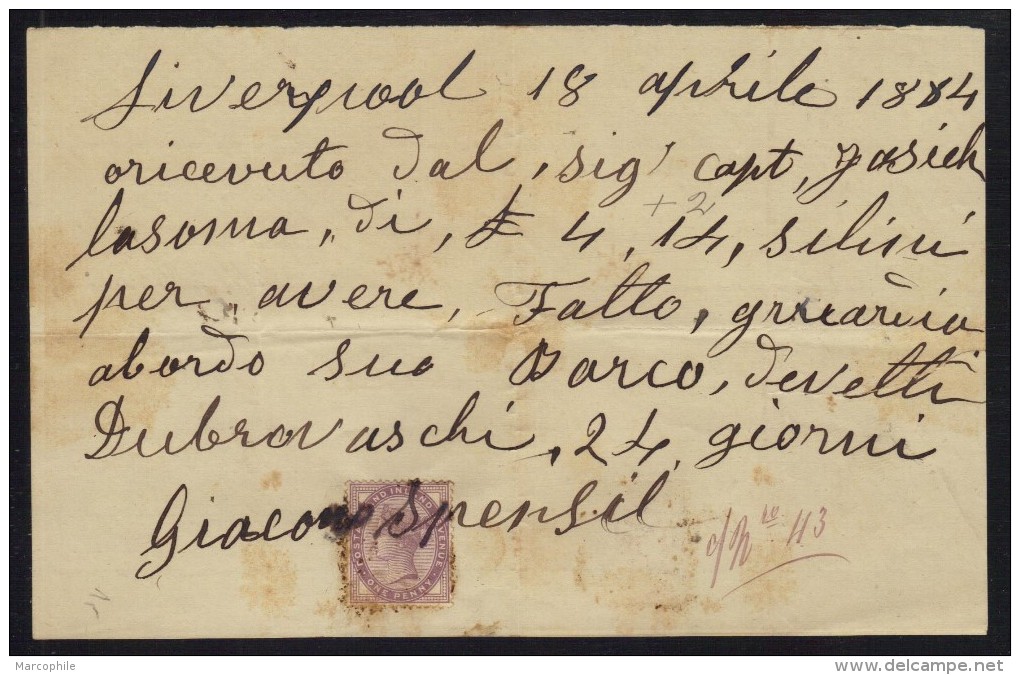 Liverpool 18 aprile 1884
oricevuto dal, sig' capt, Jasich
lasoma, di, £ 4, 14, silini
+2
per, avere, Fatto, gruardia
abordo suo Barco, devetti
Dubrovaschi, 24 giorni
Giacomo Spensil
POSTAGE AND INLAND REVENUE
ONE PENNY
43
Marcophile
delcampe.net